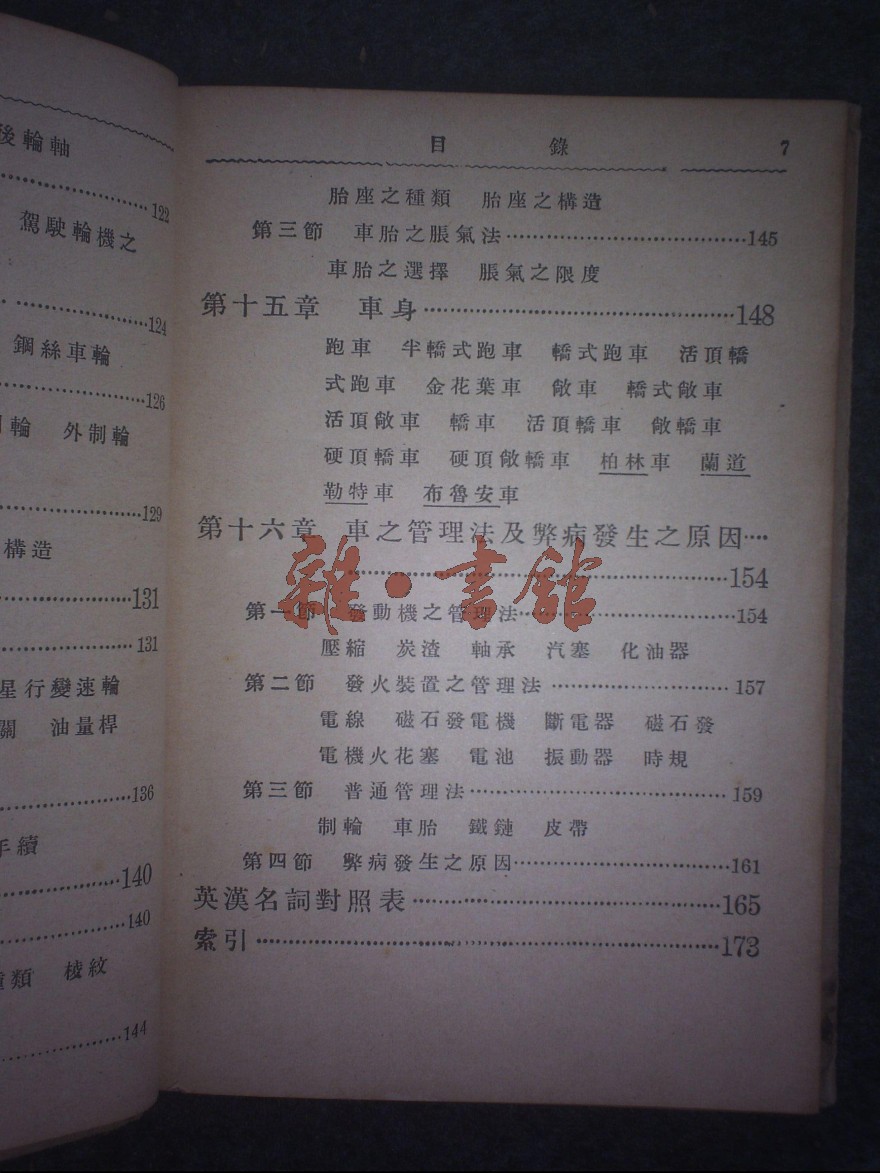 後輪軸
122
駕駛輪機之
124
鋼絲車輪
126
輪 外制輪
129
構造
131
131
星行變速輪
關 油量桿
136
年續
140
140
種類 棱紋
144
目錄 7
胎座之種類 胎座之構造
第三節 車胎之脹氣法……145
車胎之選擇 脹氣之限度
第十五章 車身……148
跑車 半轎式跑車 轎式跑車 活頂轎
式跑車 金花葉車 敞車 轎式敞車
活頂敞車 轎車 活頂轎車 敞轎車
硬頂轎車 硬頂敞轎車 柏林車 蘭道
勒特車 布魯安車
第十六章 車之管理法及弊病發生之原因……
……154
第一節 發動機之管理法……154
壓縮 炭渣 軸承 汽塞 化油器
第二節 發火裝置之管理法……157
電線 磁石發電機 斷電器 磁石發
電機火花塞 電池 振動器 時規
第三節 普通管理法……159
制輪 車胎 鐵鏈 皮帶
第四節 弊病發生之原因……161
英漢名詞對照表……165
索引……173
雜·書館